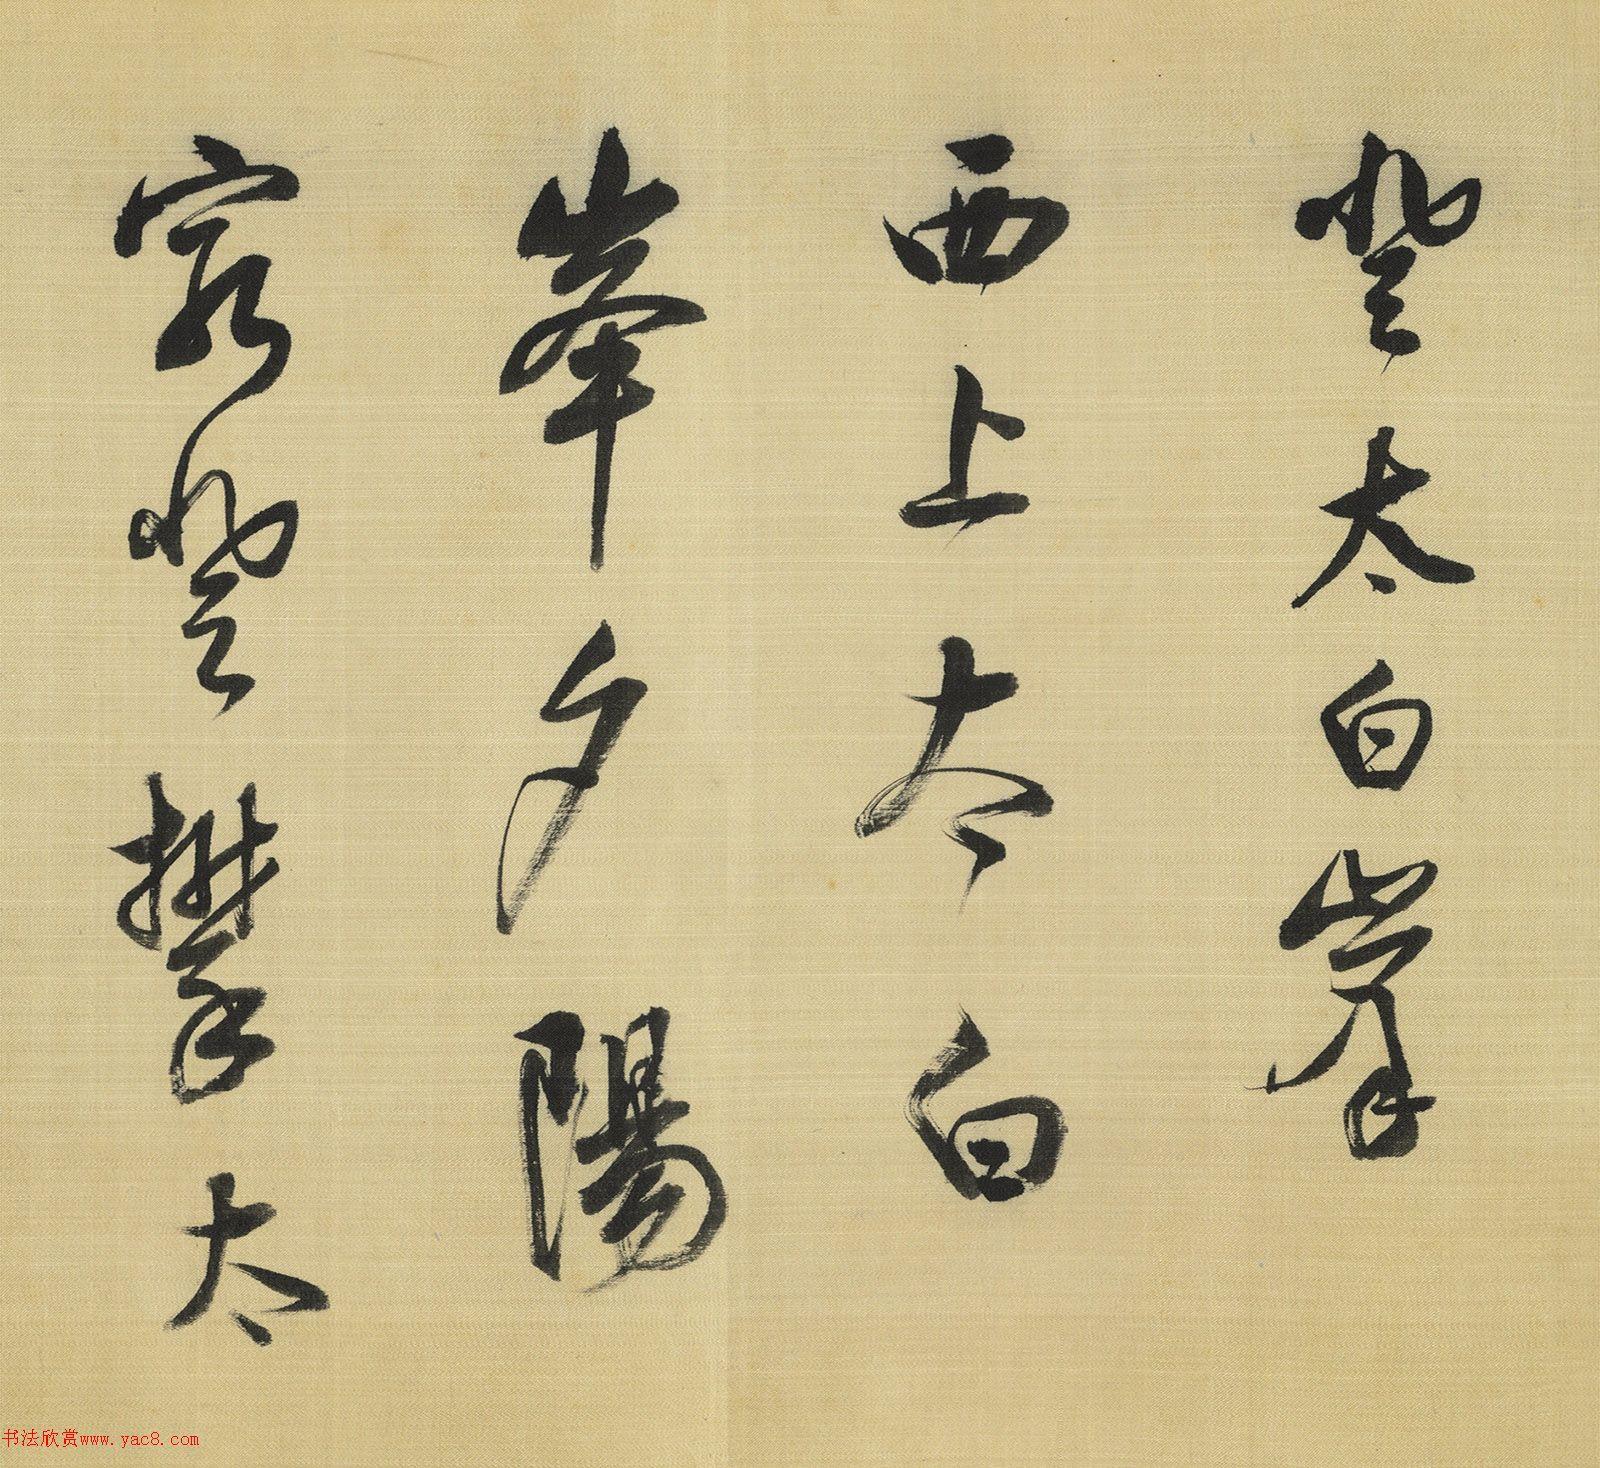 登太白峯
西上太白
峯夕陽
窮登攀太
书法欣赏www.yac8.com